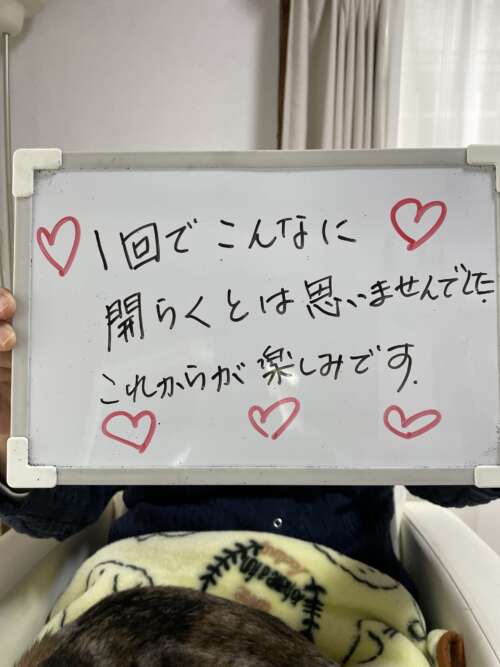 1回でこんなに
開らくとは思いませんでした
これからが楽しみです.